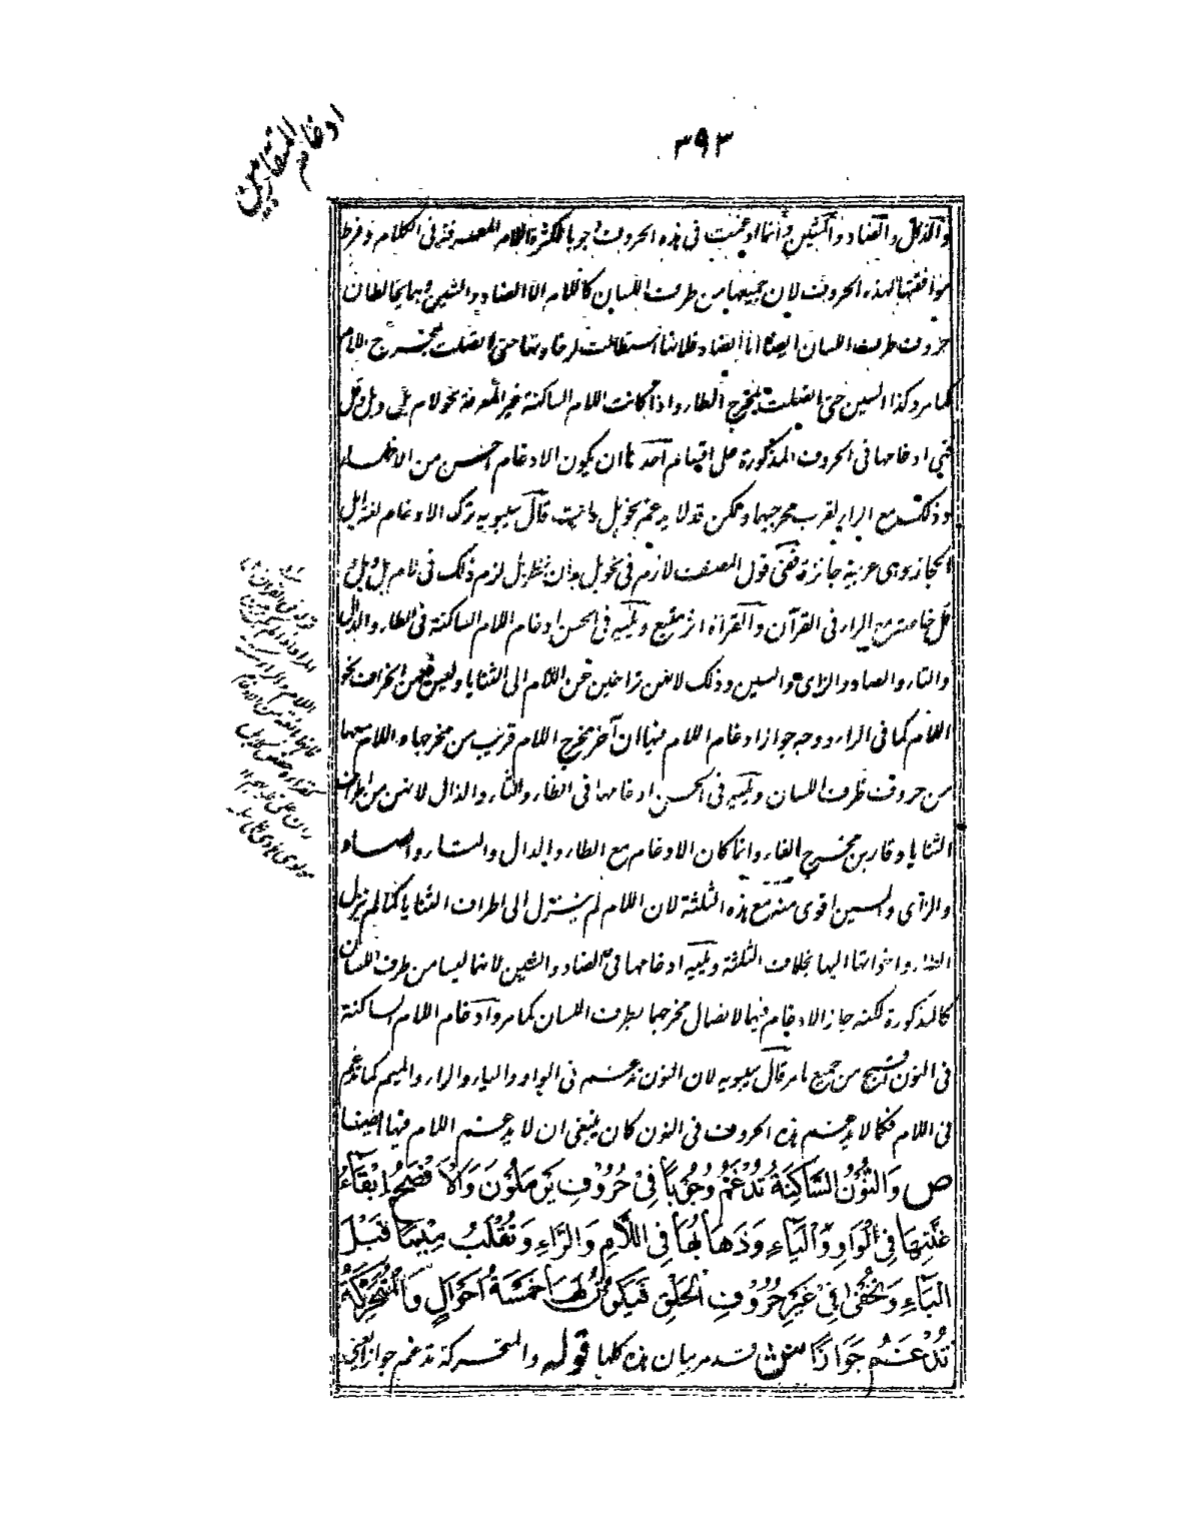 ادغام المتقاربين
٣٩٣
والذال والضاد والشين وانما ادغمت فى هذه الحروف وجوبا لكثرة اللام المعرفة فى الكلام وفرط
موافقتها لهذه الحروف لان جميعها من طرف اللسان كاللام الا الضاد والشين وهما يخالطان
حروف طرف اللسان ايضا اما الضاد فلانها استطالت لرخاوتها حتى اتصلت بمخرج اللام
كما مر وكذا الشين حتى اتصلت بمخرج الطاء واذا كانت اللام الساكنة غير المعرفة نحو لام هل وبل وقل
فهى ادغامها فى الحروف المذكورة على اقسام احدها ان يكون الادغام احسن من الاظهار
وذلك مع الراء لقرب مخرجيهما ولكن قد لا يدغم نحو بل رانت قال سيبويه ترك الادغام لغة اهل
الحجاز وهى عربية جائزة ففى قول المصنف لازم فى نحو بل ران نظر بل لزم ذلك فى لام بل وهل
قل خاصة مع الراء فى القرآن والقرآة اثر متبع ويليه فى الحسن ادغام اللام الساكنة فى الطاء والدال
والتاء والصاد والزاى والسين وذلك لانهن تراخين عن اللام الى الثنايا وليس فيهن انحراف نحو
اللام كما فى الراء ووجه جواز ادغام اللام فيها ان آخر مخرج اللام قريب من مخرجها واللام معها
من حروف طرف اللسان ويليه فى الحسن ادغامها فى الظاء والثاء والذال لانهن من اطراف
الثنايا وقاربن مخرج الفاء وانما كان الادغام مع الطاء والدال والتاء والصاد
والزاى والسين اقوى منه مع هذه الثلثة لان اللام لم ينزل الى اطراف الثنايا كما لم تنزل
الطاء واخواتها اليها بخلاف الثلثة ويليه ادغامها فى الضاد والشين لانهما ليسا من طرف اللسان
كالمذكورة لكنه جاز الادغام فيهما لاتصال مخرجهما بطرف اللسان كما مر وادغام اللام الساكنة
فى النون اقبح من جميع ما مر قال سيبويه لان النون تدغم فى الواو والياء والراء والميم كما تدغم
فى اللام فكما لا تدغم هذه الحروف فى النون كان ينبغى ان لا تدغم اللام فيها ايضا
ص وَالنُّوْنُ السَّاكِنَةُ تُدْغَمُ وُجُوْبًا فِيْ حُرُوْفِ يَرْمَلُوْنَ وَالْاَفْصَحُ اِبْقَاءُ
غُنَّتِهَا فِي الْوَاوِ وَالْيَاءِ وَذَهَابُهَا فِي اللَّامِ وَالرَّاءِ وَتُقْلَبُ مِيْمًا قَبْلَ
الْبَاءِ وَتُخْفٰى فِيْ غَيْرِ حُرُوْفِ الْحَلْقِ فَيَكُوْنُ لَهَا خَمْسَةُ اَحْوَالٍ وَالْمُتَحَرِّكَةُ
تُدْغَمُ جَوَازًا ش قد مر بيان هذه كلها قوله والمتحركة تدغم جوازا يعنى